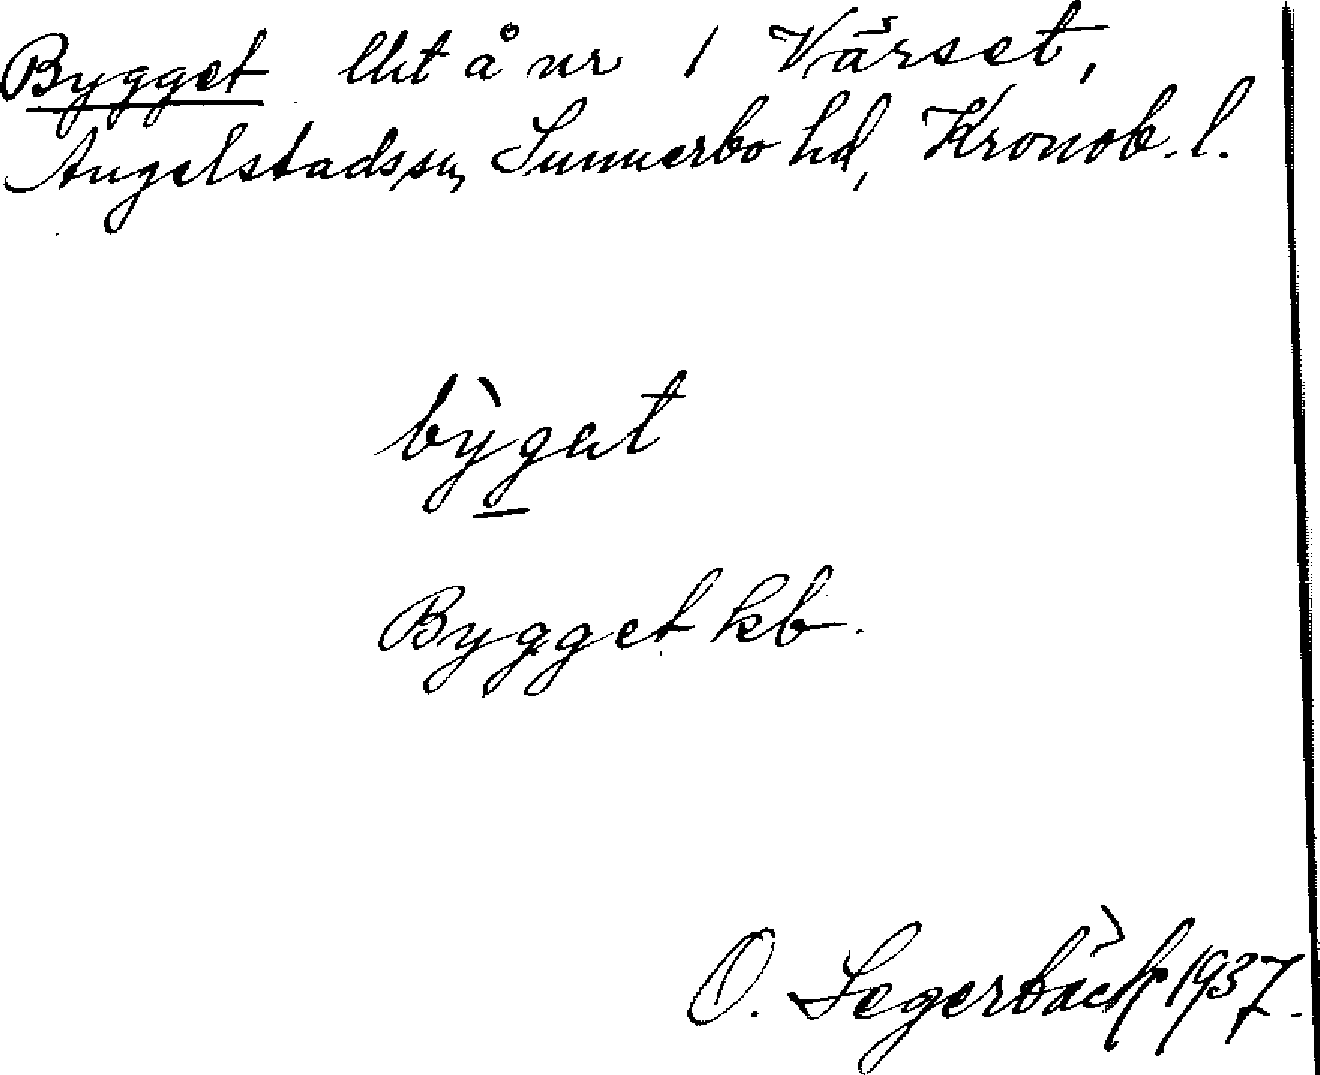 Bygget lht å nr 1 Värset,
Angelstads sn, Sunnerbo hd, Kronob. l.
bỳgat
Bygget kb.
O. Segerbäck 1937.